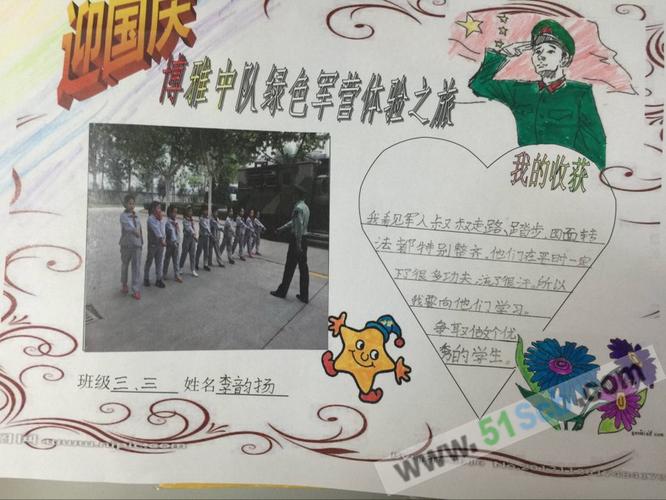 迎国庆
博雅中队绿色军营体验之旅
我的收获
我看见军人叔叔走路、踏步、四面转
法都特别整齐。他们在平时一定
下了很多功夫,流了很汗。所以
我要向他们学习。
争取做个优
秀的学生。
班级三、三 姓名李韵扬
www.51Sxw.com